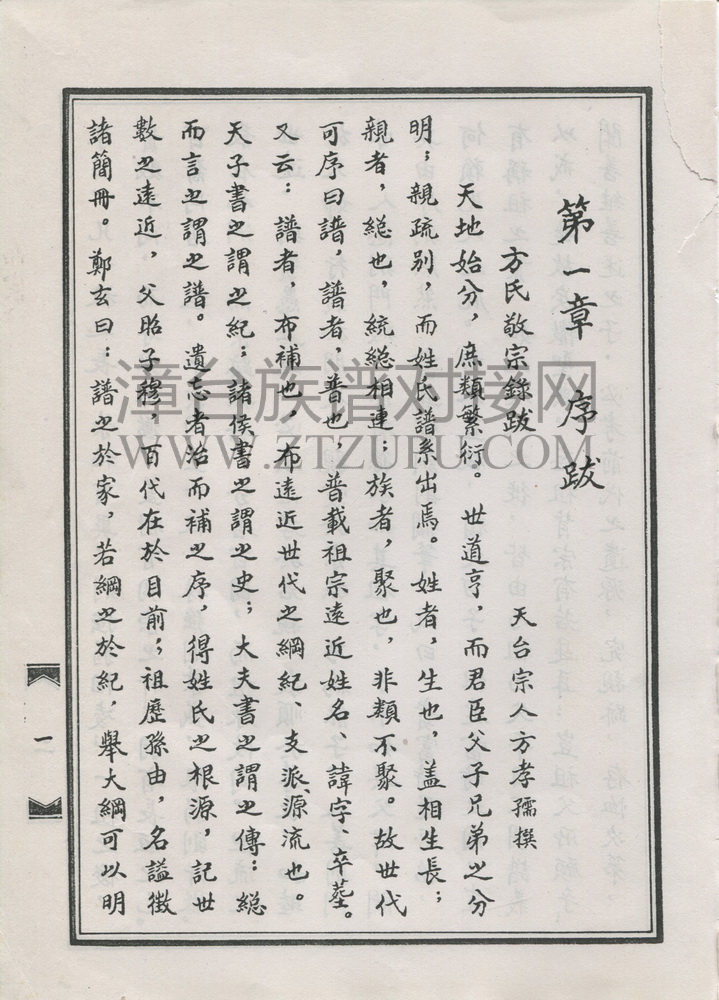 第一章 序跋
方氏敬宗錄跋 天台宗人方孝孺撰
天地始分，庶類繁衍。世道亨，而君臣父子兄弟之分
明；親疏別，而姓氏譜系出焉。姓者，生也，盖相生長；
親者，緫也，統緫相連；族者，聚也，非類不聚。故世代
可序曰譜，譜者，普也，普載祖宗遠近姓名、諱字、卒塟。
又云：譜者，布補也，布遠近世代之綱紀、支派、源流也。
天子書之謂之紀；諸侯書之謂之史；大夫書之謂之傳；緫
而言之謂之譜。遺忘者治而補之序，得姓氏之根源，記世
數之遠近，父昭子穆，百代在於目前；祖歷孫由，名謚徵
諸簡冊。鄭玄曰：譜之於家，若綱之於紀，舉大綱可以明
一
漳台族谱对接网
WWW.ZTZUPU.COM